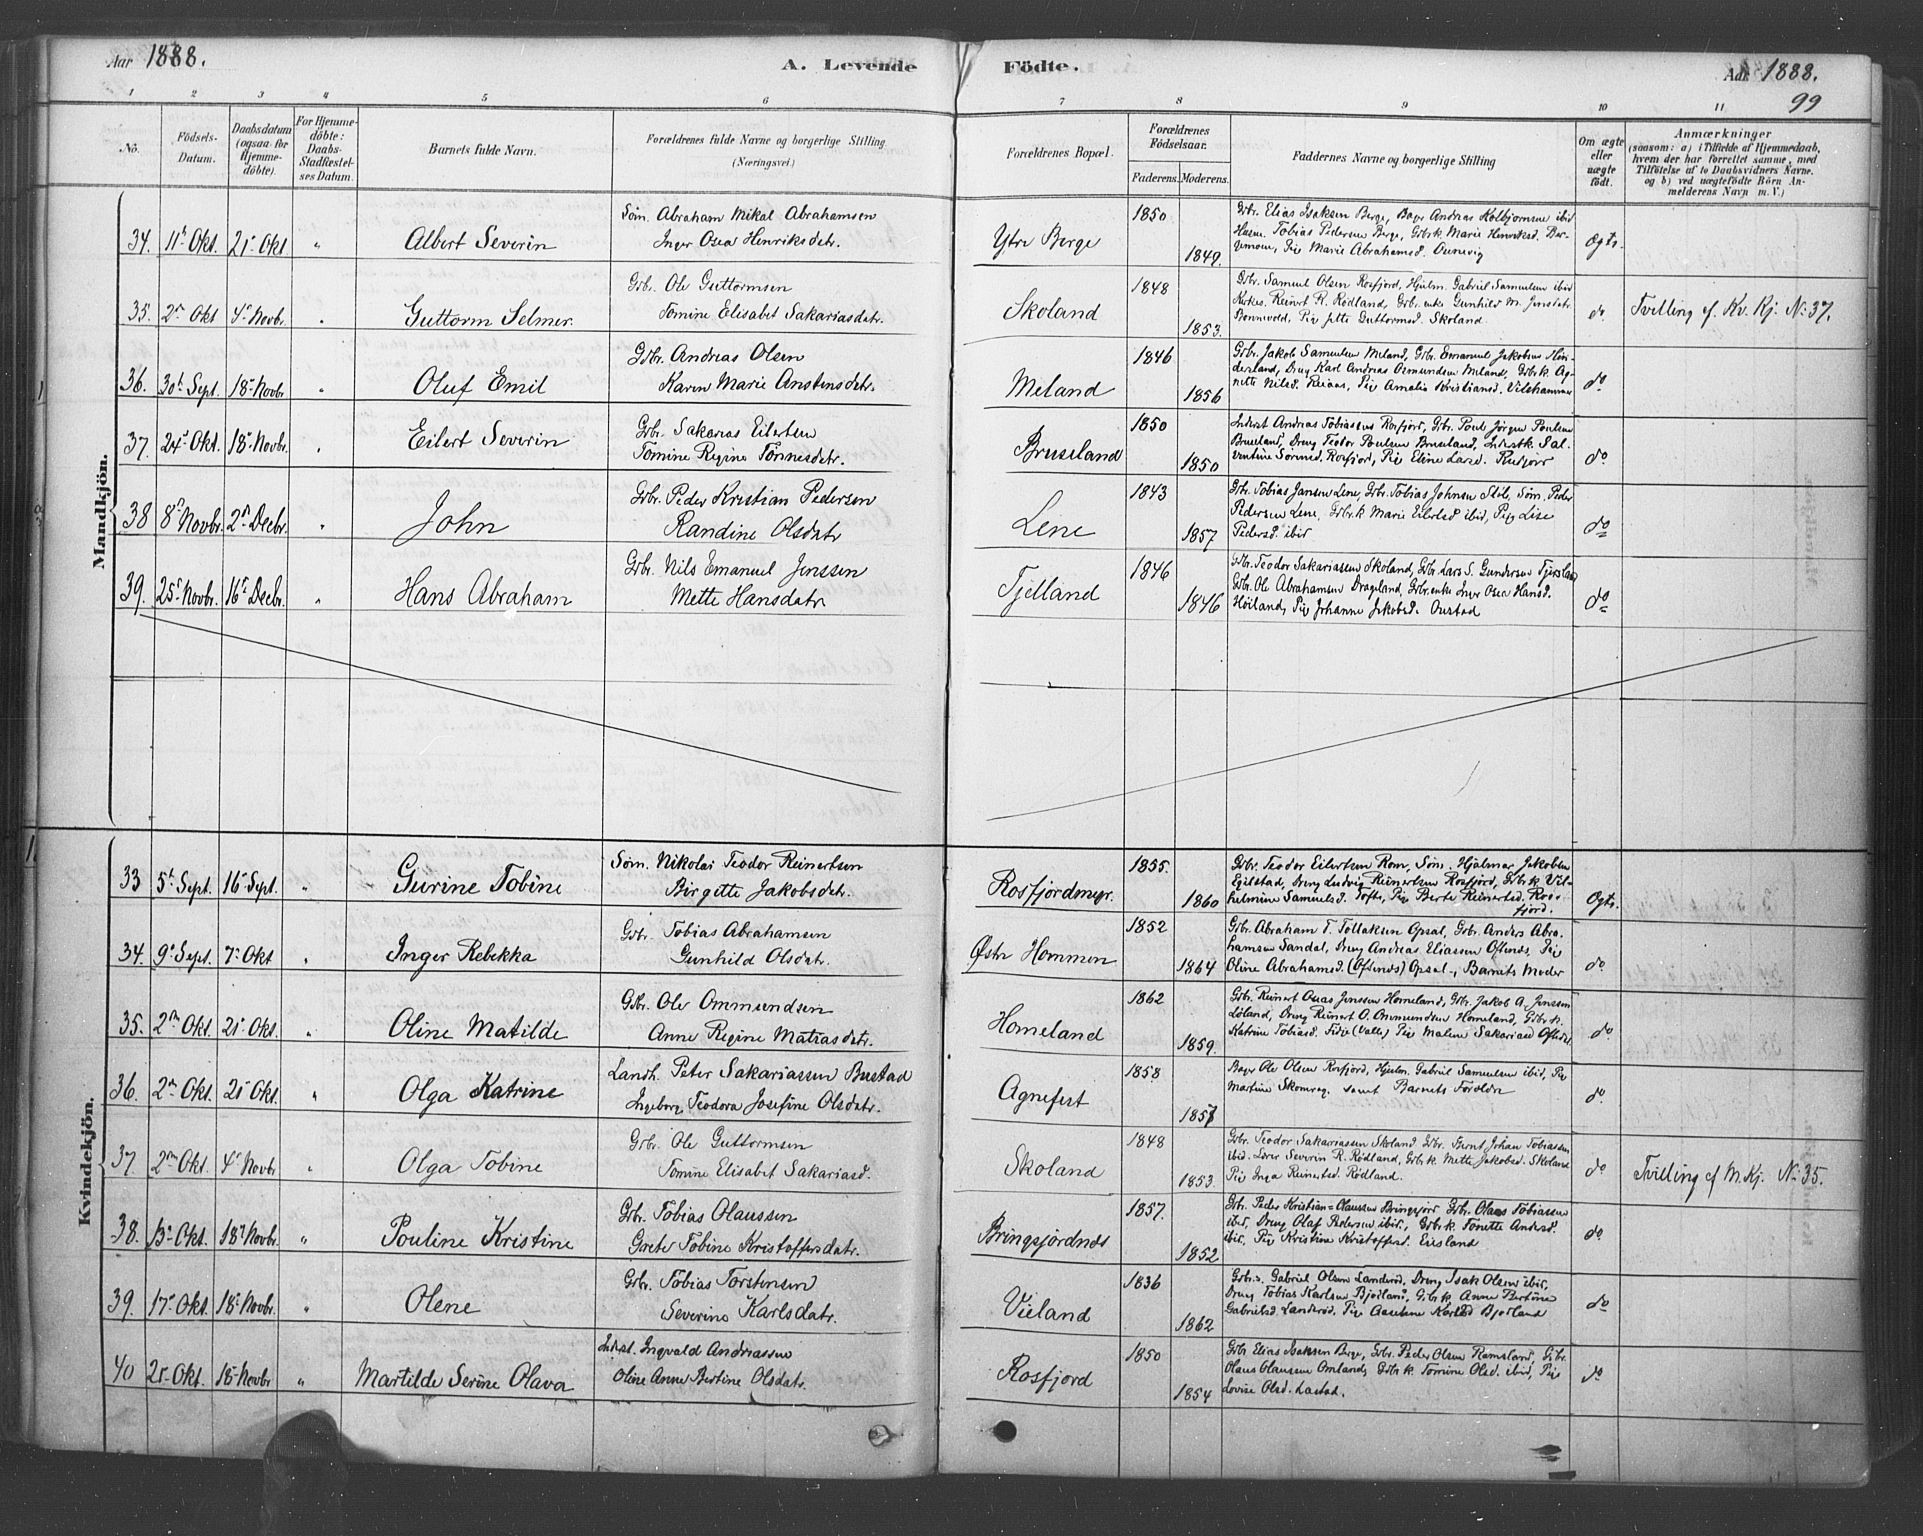 Aar 1888.
A. Levende
Födte.
Aar 1888.
99
1 2 3 4 5 6 7 8 9 10 11
No.
Födsels-
Datum.
Daabsdatum
(ogsaa for
Hjemme-
döbte).
For Hjemme-
döbte:
Daabs-
Stadfæstel-
ses Datum.
Barnets fulde Navn.
Forældrenes fulde Navne og borgerlige Stilling
(Næringsvei.)
Forældrenes Bopæl.
Forældrenes
Födselsaar.
Faderens. Moderens.
Faddernes Navne og borgerlige Stilling
Om ægte
eller
uægte
födt.
Anmærkninger
(saasom: a) i Tilfælde af Hjemmedaab,
hvem der har forrettet samme, med
Tilföielse af to Daabsvidners Navne.
og b) ved uægtefödte Börn An-
melderens Navn m. V.)
Mandkjön.
34. 11te Okt. 21 Okt. " Albert Severin
Søm. Abraham Mikal Abrahamsen
Inger Osea Henriksdatr.
Ytre Berge
1850
1849.
Gbr. Elias Isaksen Berge, Bager Andreas Kolbjørnsen ibid
Husm. Tobias Pedersen Berge, Gbrk. Marie Henriksd. Ber-
Pig Marie Abrahamsd.
Ægte.
35. 2n Okt 4e Novbr. " Guttorm Selmer.
Gbr. Ole Guttormsen
Tomine Elisabet Sakariasdatr.
Skoland
1848
1853.
Gbr. Samuel Olsen Rosfjord, Hjulm. Gabriel Samuelsen ibid
Kirkes. Reinert R. Rödland, Gbr. enke Gunhild M. Jensdatr.
Pig Jette Guttormsd. Skoland.
do.
Tvilling cf. Kv. Kj. No 37.
36. 30te Sept. 18e Novbr " Oluf Emil
Gbr. Andreas Olsen
Karen Marie Anstensdatr.
Meland
1846
1856
Gbr. Jakob Samuelsen Meland, Gbr. Emanuel Jakobsen Hin-
derland, Dreng Karl Andreas Osmundsen Meland, Gbrk. Ag-
nette Nilsd. Pig Amalia Kristiansd. Vilshammer
do
37. 24e Okt. 18e Novbr. " Eilert Severin
Gbr. Sakarias Eilertsen
Tomine Regine Tønnesdatr.
Bruseland
1850
1850
Inderst Andreas Tobiassen Rosfjord, Gbr. Poul Jörgen Poulsen
Bruseland, Dreng Teodor Poulsen Bruseland, Inderstk. Sal-
ventine Sörensd. Rosfjord, Pig Eline Larsd.
do.
38 8e Novbr. 2n Decbr. " John
Gbr. Peder Kristian Pedersen
Randine Olsdatr
Lene
1843
1857
Gbr. Tobias Jansen Lene, Gbr. Tobias Johnsen Søm. Peder
Pedersen Lene, Gbrk. Marie Eilertsd ibid, Pig Lise
Pedersd. ibid
do
39. 25e Novbr. 16e Decbr. " Hans Abraham
Gbr. Nils Emanuel Jenssen
Mette Hansdatr
Tjelland
1846
1846
Gbr. Teodor Sakariassen Skoland, Gbr. Lars S. Gundersen
Gbr. Ole Abrahamsen Drageland, Gbr. enke Inger Osea Hansd.
Höiland, Pig Johanne Jakobsd.
do
Kvindekjön.
33 5te Sept. 16 Sept. " Gurine Tobine
Søm. Nikolai Teodor Reinertsen
Birgitte Jakobsdatr.
Rosfjordmyr.
1855.
1860
Gbr. Teodor Eilertsen Rom, Søm. Hjalmar Jakobsen
Egilstad, Dreng Ludvig Reinertsen Rosfjord, Gbrk. Vil-
helmine Samuelsd. Tofte, Pig Berte Reinertsd. Ros-
fjord.
Ægte.
34. 9e Sept. 7e Okt " Inger Rebekka
Gbr. Tobias Abrahamsen
Gunhild Olsdatr.
Østre Hommen
1852
1864
Gbr. Abraham T. Tollaksen Opsal, Gbr. Anders Abra-
hamsen Sandal, Dreng Andreas Eliassen Ofsends, Pig
Oline Abrahamsd. (Ofsends) Opsal., Barnets Moder
do.
35. 2n Okt. 21 Okt. " Oline Matilde
Gbr. Ole Ommundsen
Anne Regine Matiasdatr.
Homeland
1862
1859.
Gbr. Reinert Osias Jenssen Homeland, Gbr. Jakob A. Jenssen
Löland, Dreng Reinert O. Ommundsen Homeland, Gbrk.
Katrine Tobiasd. (Valle) Pig Malene Sakariasd
do.
36. 2n Okt. 21 Okt. " Olga Katrine
Landh. Peter Sakariassen Bustad
Ingeborg Teodora Josefine Olsdatr.
Agnefest
1858
1857
Bager Ole Olsen Rosfjord, Hjulm. Gabriel Samuelsen ibid, Pig
Martine samt Barnets Foreldre
do.
37 2n Okt. 4e Novbr " Olga Tobine
Gbr. Ole Guttormsen
Tomine Elisabet Sakariasd.
Skoland
1848
1853.
Gbr. Teodor Sakariassen Skoland Gbr. Bernt Johan Tobiassen
ibid. Lærer Severin R. Rödland, Gbrk. Mette Jakobsd. Skoland
Pig Inga Reinertsd. Rödland.
do
Tvilling cf M. Kj. No 35.
38. 13e Okt. 18n Novbr. " Pouline Kristine
Gbr. Tobias Olaussen
Grete Tobine Kristoffersdatr.
Bringsjördnes
1857.
1852
Gbr. Peder Kristian Olaussen Bringsjord Gbr. Olaus Tobiassen
ibid, Dreng Olaf Pedersen ibid, Gbrk. Tonette Andersd.
ibid, Pig Kristine Kristoffersd. Eiesland
do.
39. 17e Okt. 18e Novbr. " Olene
Gbr. Tobias Torstensen
Severine Karlsdatr.
Vieland
1836
1862
Gbr. Gabriel Olsen Landeröd, Dreng Isak Olsen ibid,
Dreng Tobias Karlsen Bjolland, Gbrk. Anne Bertine
Gabrielsd. Landeröd. Pig Karlsd Bjolland
do
40 21 Okt. 18e Novbr " Martilde Serine Olava
Inderst. Ingvald Andreassen
Oline Anne Bertine Olsdatr.
Rosfjord
1850
1854
Gbr. Elias Isaksen Berge, Gbr. Peder Olsen Ramsland, Gbr.
Olaus Olaussen Omland, Gbrk. Tomine Olsd. ibid, Pig
Lovise Olsd. Lastad.
do